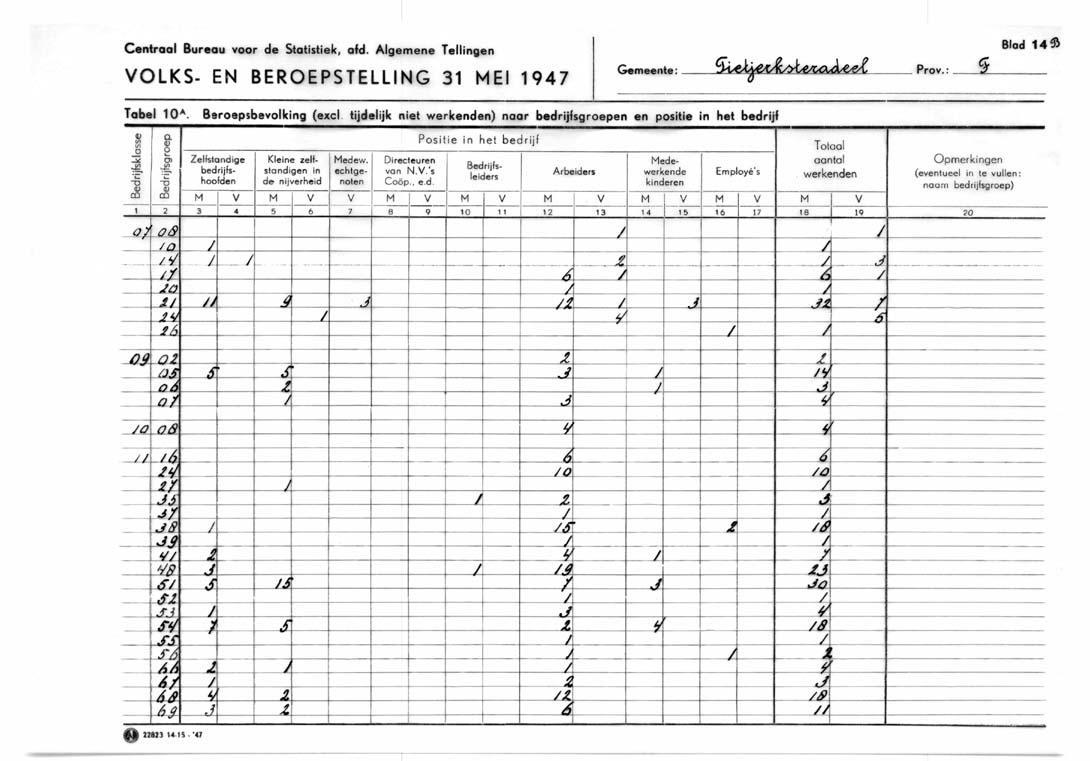 Centraal Bureau voor de Statistiek, afd. Algemene Tellingen
VOLKS- EN BEROEPSTELLING 31 MEI 1947
Gemeente: Tietjerksteradeel Prov.: F
Blad 14 B
Tabel 10A. Beroepsbevolking (excl. tijdelijk niet werkenden) naar bedrijfsgroepen en positie in het bedrijf
Bedrijfsklasse Bedrijfsgroep Positie in het bedrijf Totaal aantal werkenden Opmerkingen (eventueel in te vullen: naam bedrijfsgroep)
Zelfstandige bedrijfshoofden Kleine zelfstandigen in de nijverheid Medew. echtgenoten Directeuren van N.V.'s Coöp., e.d. Bedrijfsleiders Arbeiders Medewerkende kinderen Employé's
M V M V V M V M V M V M V M V M V
1 2 3 4 5 6 7 8 9 10 11 12 13 14 15 16 17 18 19 20
07 08 1 1
10 1 1
14 1 1 2 1 3
17 6 1 6 1
20 1 1
21 11 9 3 12 1 3 32 7
24 1 4 5
26 1 1
09 02 2 2
05 5 5 3 1 14
06 2 1 3
07 1 3 4
10 08 4 4
11 16 6 6
24 10 10
27 1 1
35 1 2 3
37 1 1
38 1 15 2 18
39 1 1
41 2 4 1 7
48 3 1 19 23
51 5 15 7 3 30
52 1 1
53 1 3 4
54 7 5 2 4 18
55 1 1
56 1 1 2
66 2 1 1 4
67 1 2 3
68 4 2 12 18
69 3 2 6 11
22823 14-15 - '47